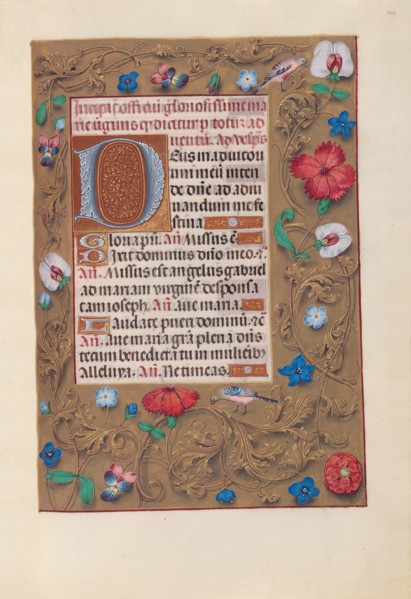 Incipit offitiu gloriosissime ma
rie uginis qd dicitur p totuz ad
uentuz. Ad vesps
Deus in adiutori
um meu inten
de. dne ad adiu
uandum me fe
stina
Gloria pri. An. Missus e
Dixit dominus dno meo. c
An. Missus est angelus gabriel
ad mariam virgine desponsa
tam ioseph. An. aue maria.
Laudate pueri dominu. c
An. aue maria gra plena dns
tecum benedicta tu in muliebz
Alleluya. An. Ne timeas.